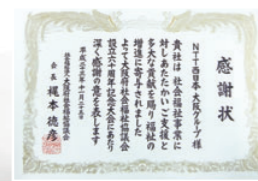 感謝状
NTT西日本 大阪グループ 様
貴社は 社会福祉事業に
対しあたたかいご支援と
多大な貢献を賜り 福祉の
増進に寄与されました
よって大阪府社会福祉協議会
設立六十周年記念大会にあたり
深く感謝の意を表します
平成二十三年十一月二十五日
社会福祉法人 大阪府社会福祉協議会
会長 梶本徳彦